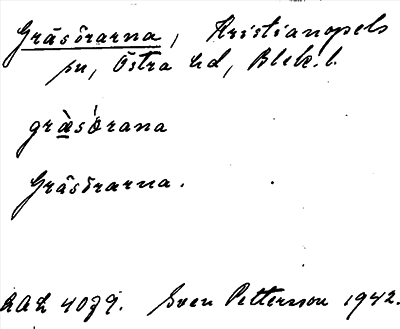 Gräsörarna, Kristianopels
sn, Östra hd, Blek. l.
græ̀sớrana
Gräsörarna.
LAL 4079. Sven Pettersson 1942.